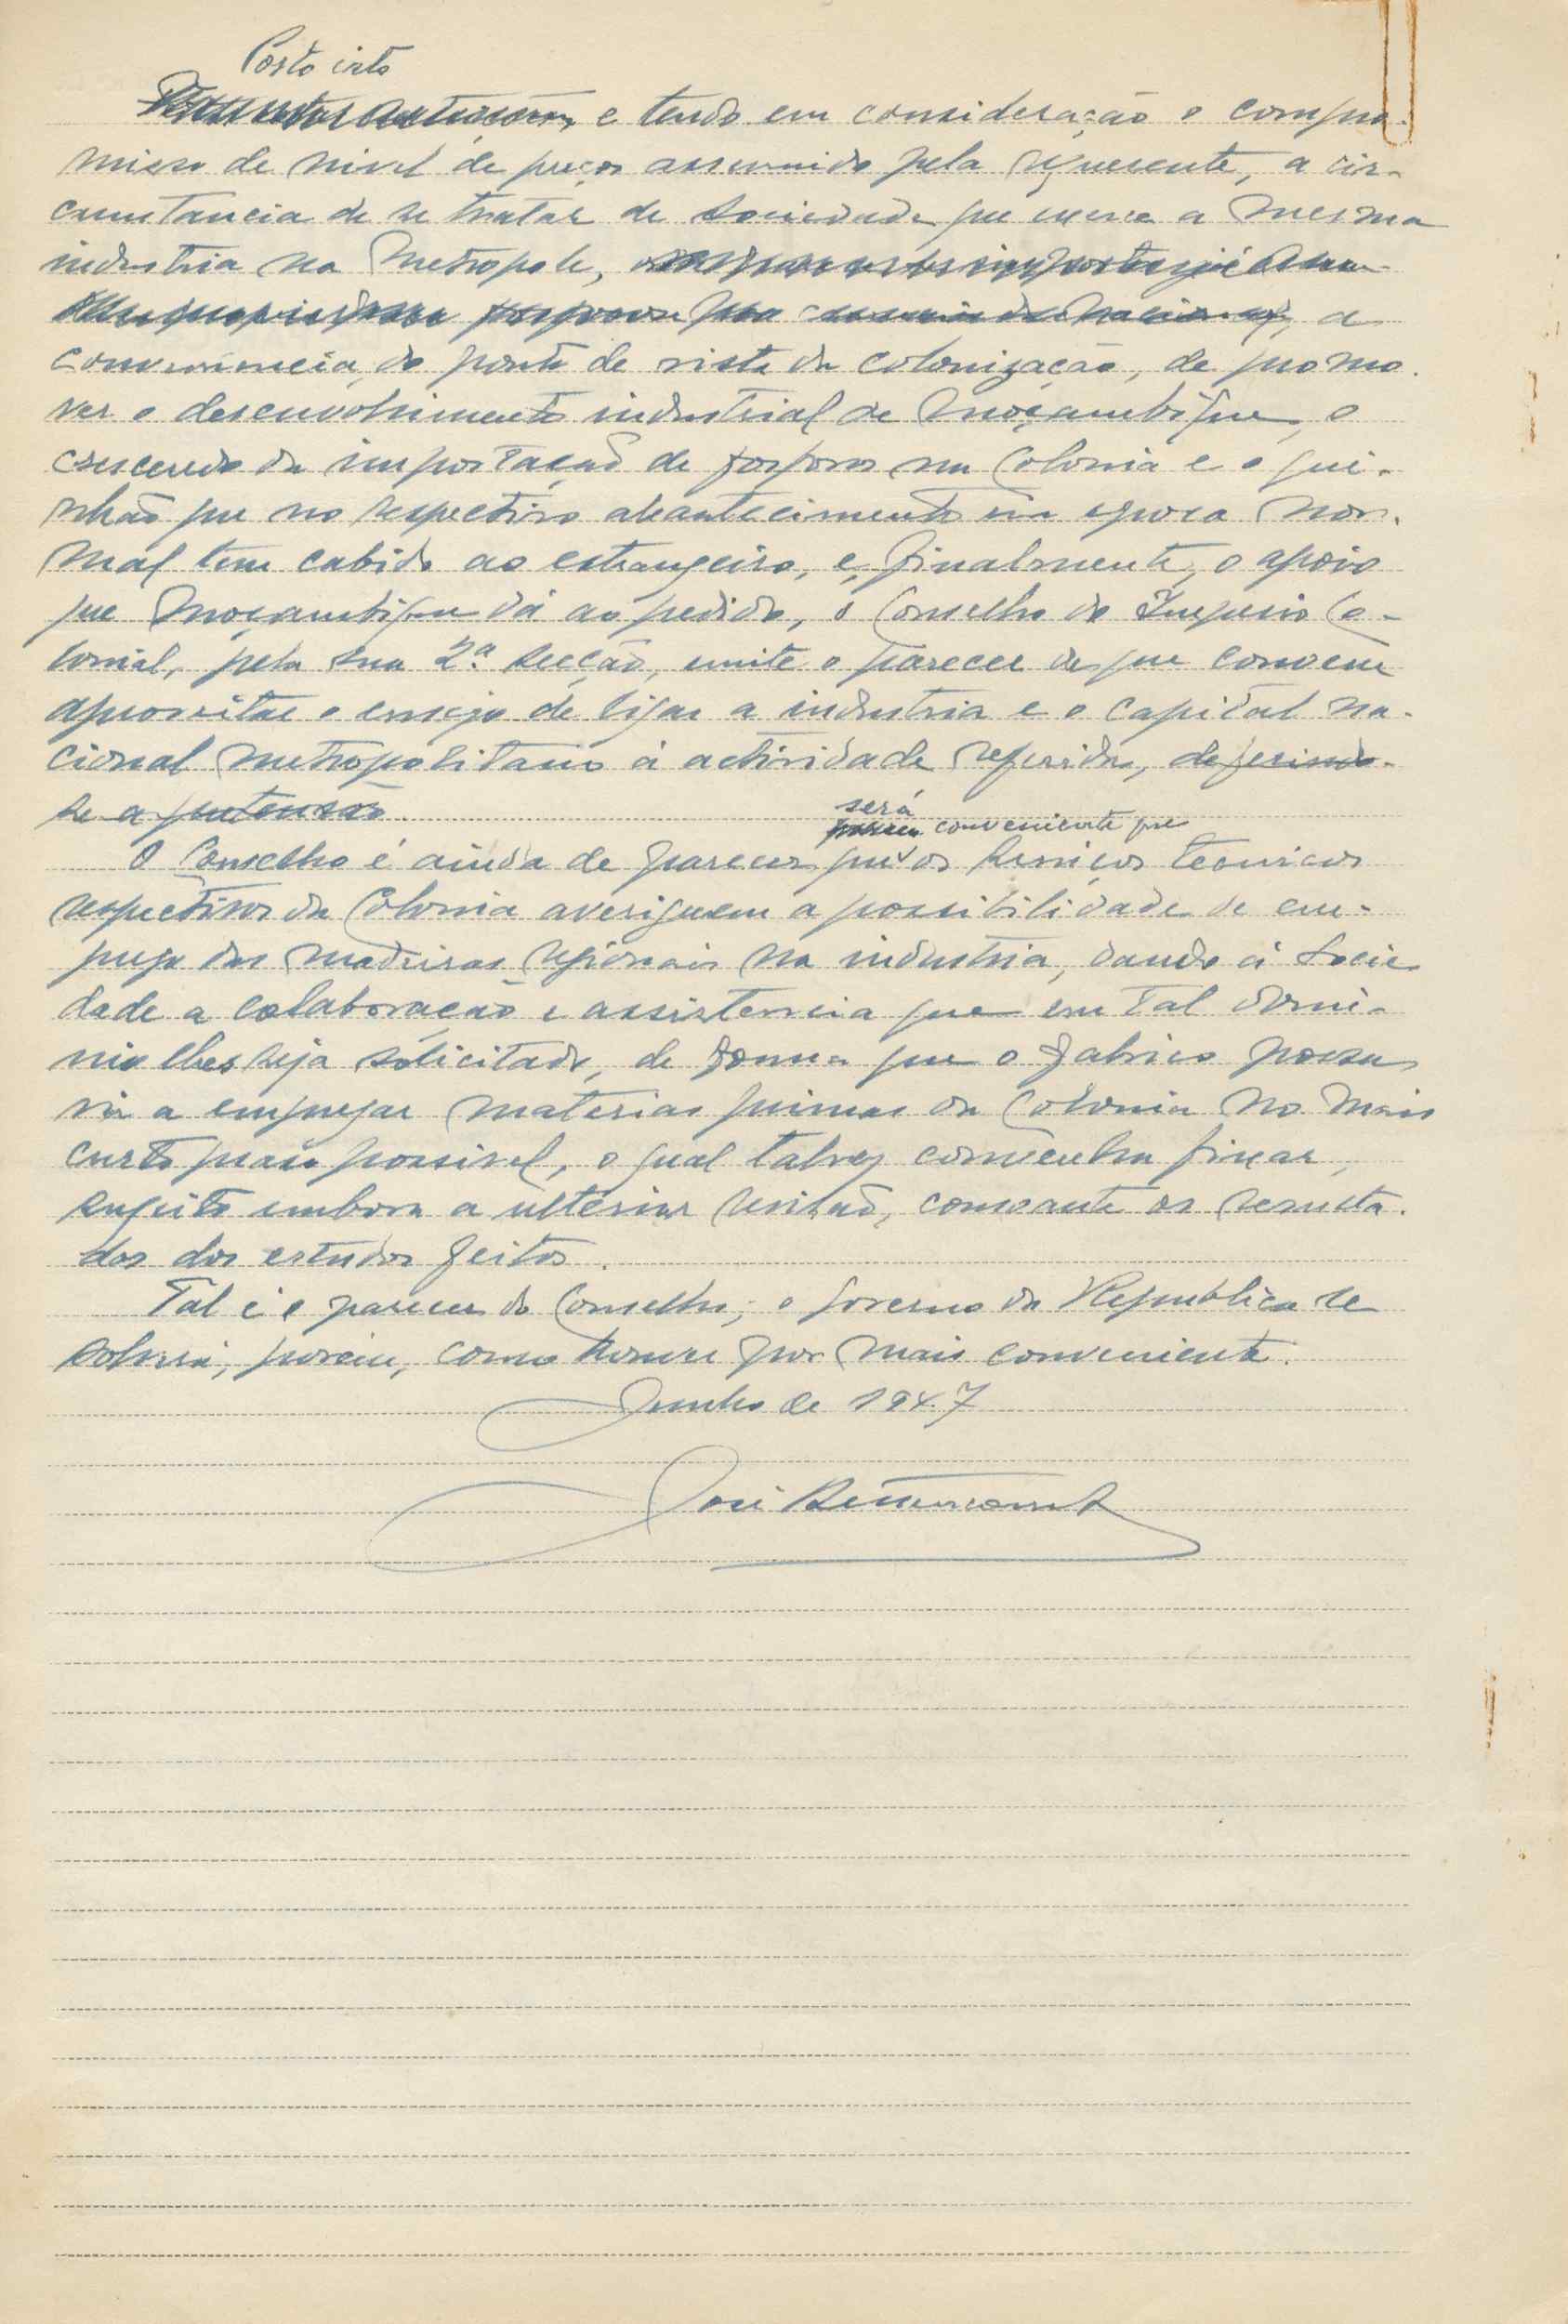 Posto isto
e tendo em consideração o compro-
misso de nivel de preços assumido pela requerente, a cir-
cunstancia de se tratar de sociedade que exerce a mesma
industria na Metropole,
a
conveniencia, do ponto de vista da colonização, de promo-
ver o desenvolvimento industrial de Moçambique, o
crescendo da importação de fosforos na Colonia e o qui-
nhão que no respectivo abastecimento em epoca nor-
mal tem cabido ao estrangeiro, e, finalmente, o apoio
que Moçambique dá ao pedido, o Conselho do Imperio Co-
lonial, pela sua 2.ª secção, emite o parecer de que convem
aproveitar o ensejo de ligar a industria e o capital na-
cional metropolitano á actividade referida, deferindo-
se a pretensão.
será
conveniente que
O Conselho é ainda de parecer que os serviços tecnicos
respectivos da Colonia averiguem a possibilidade de em-
prego das madeiras regionais na industria, dando á Socie-
dade a colaboração e assistencia que em tal domi-
nio lhes seja solicitado, de forma que o fabrico possa
vir a empregar materias primas da Colonia no mais
curto prazo possivel, o qual talvez convenha fixar,
sugeito embora a ulterior revisão, consoante os resulta-
dos dos estudos feitos.
Tal é o parecer do Conselho; o governo da Republica re-
solverá, porém, como houver por mais conveniente.
Junho de 1947
José Bettencourt